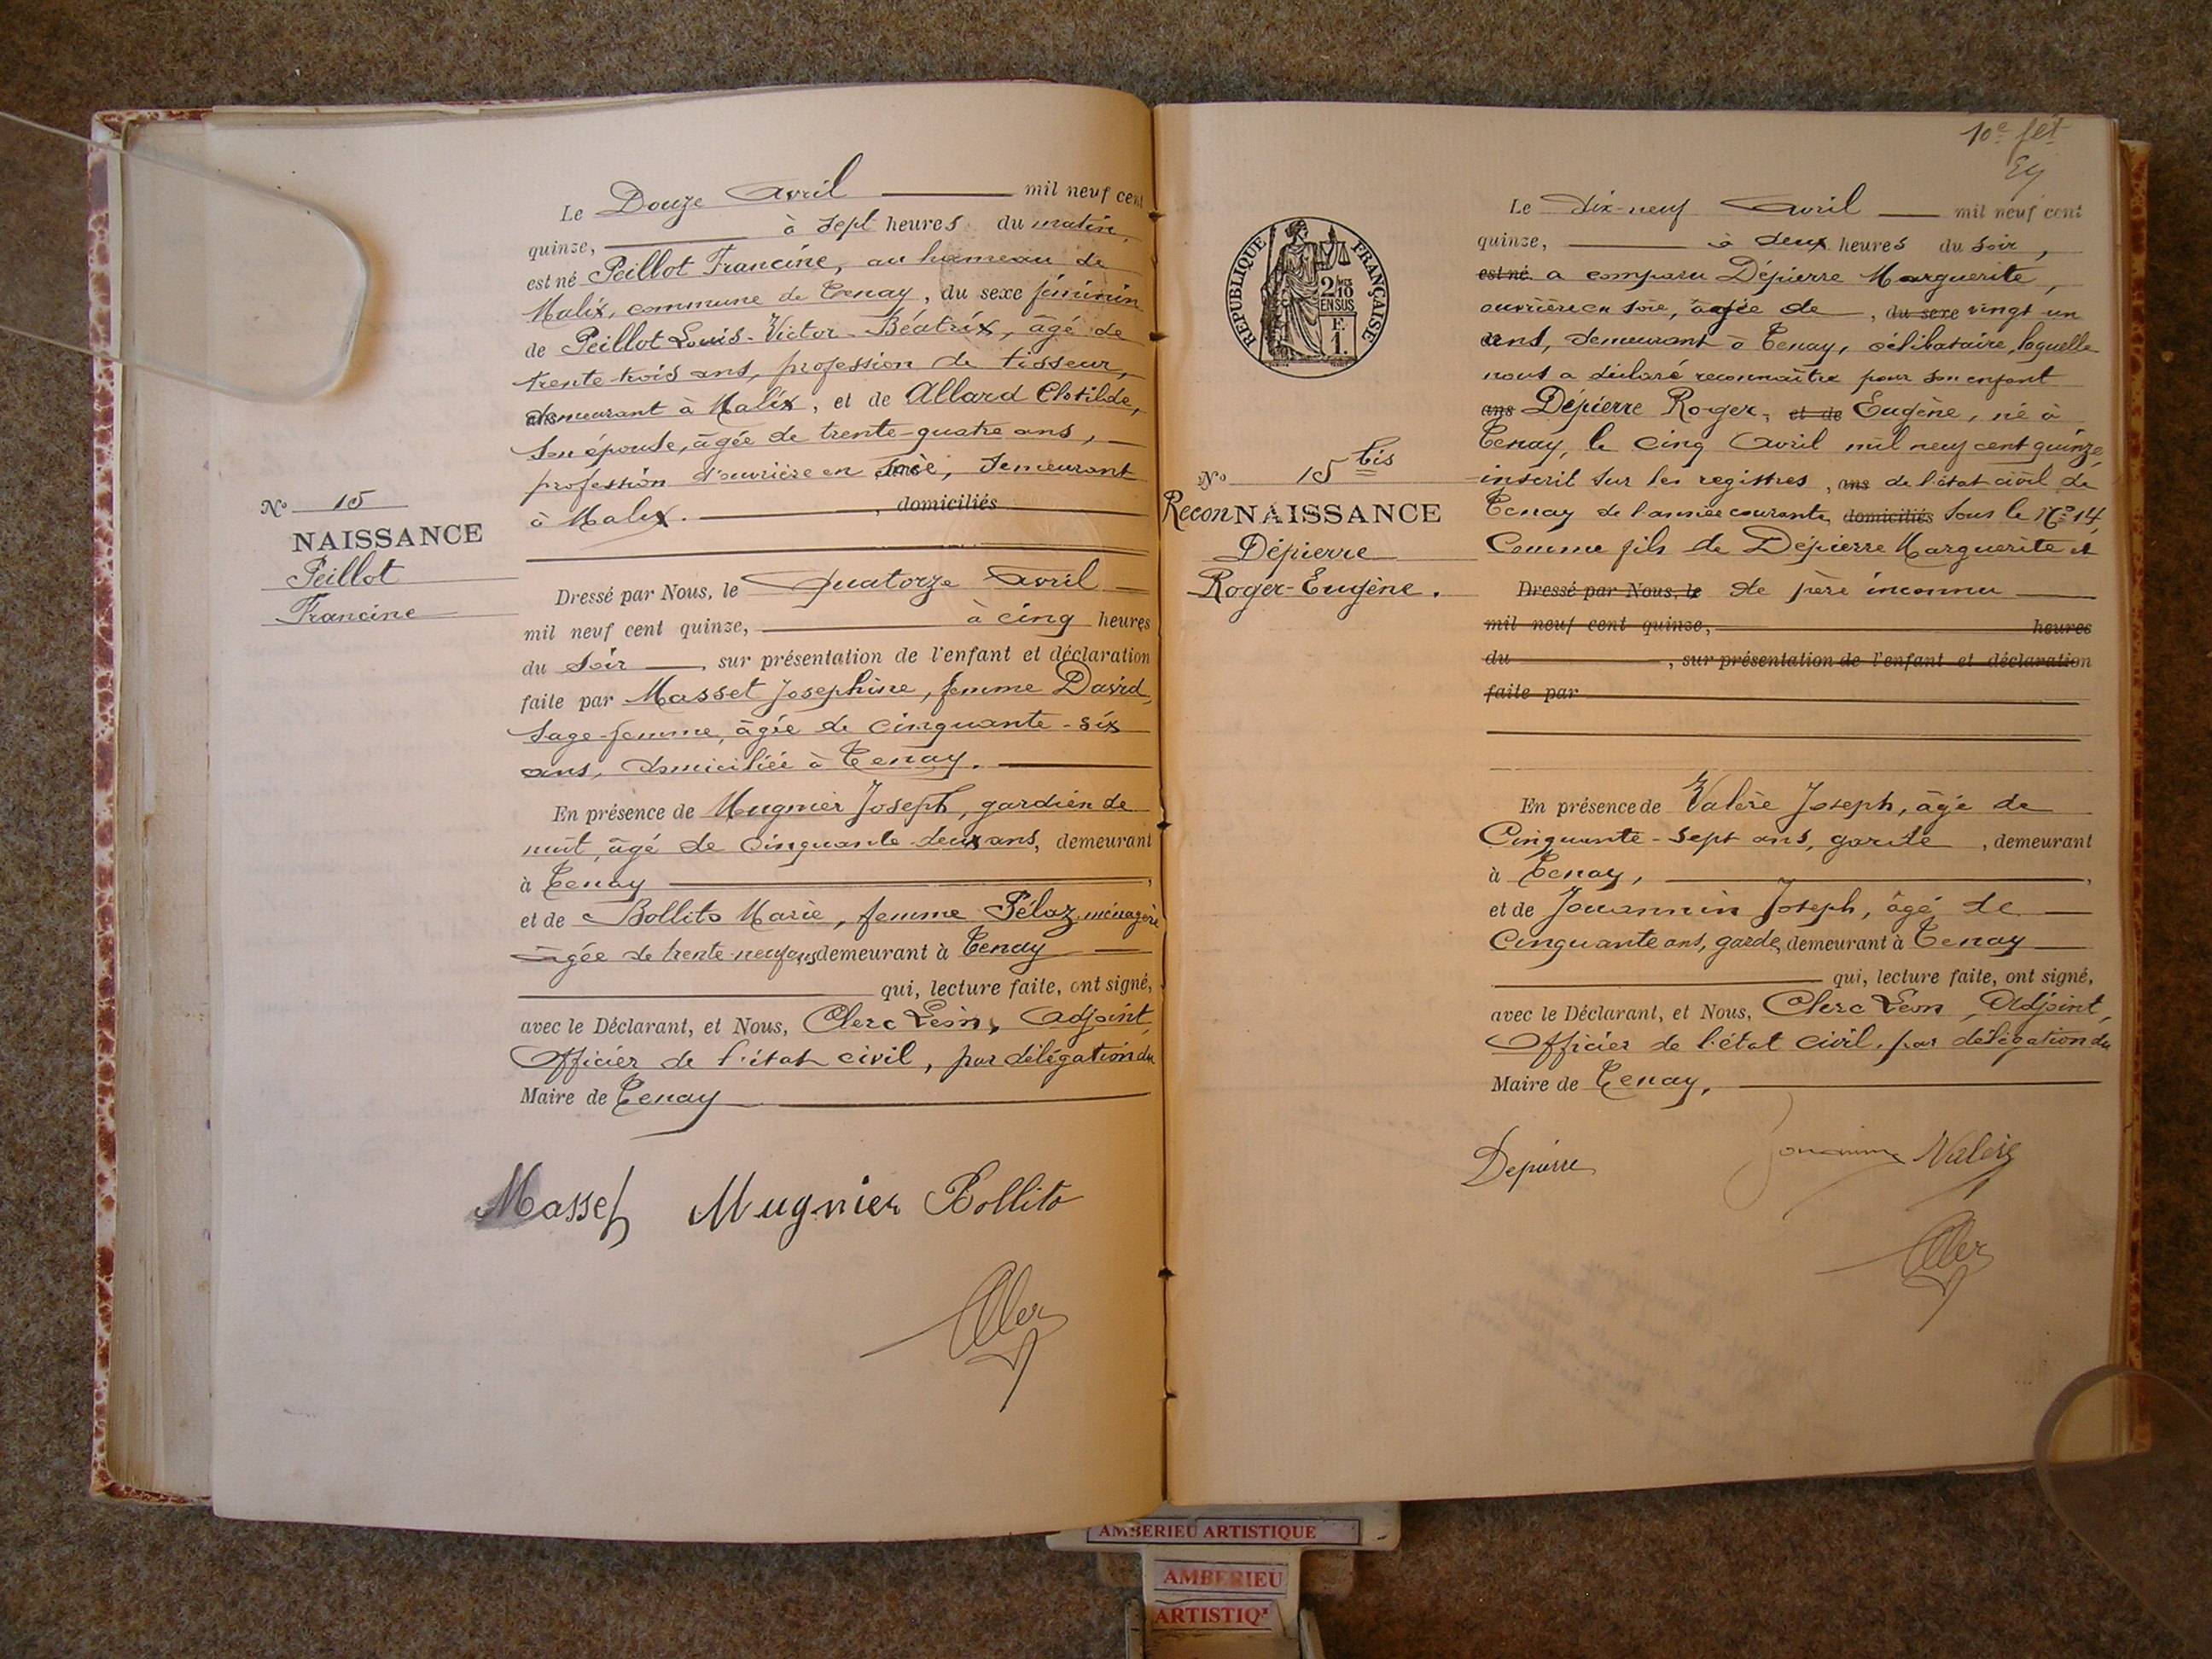 Le Douze Avril mil neuf cent
quinze, à sept heures du matin,
est né Peillot Francine, au hameau de
Malix, commune de Tenay, du sexe féminin
de Peillot Louis-Victor-Béatrix, âgé de
trente-trois ans, profession de tisseur,
demeurant à Malix, et de Allard Clotilde,
son épouse, âgée de trente-quatre ans,
profession d'ouvrière en soie, demeurant
à Malix. , domiciliés
Nº 15
NAISSANCE
Peillot
Francine
Dressé par Nous, le Quatorze Avril
mil neuf cent quinze, à cinq heures
du soir , sur présentation de l'enfant et déclaration
faite par Masset Josephine, femme David,
sage-femme, âgée de cinquante-six
ans, domiciliée à Tenay.
En présence de Mugnier Joseph, gardien de
nuit, âgé de cinquante-deux ans, demeurant
à Tenay ,
et de Bollito Marie, femme Pélaz, ménagère
âgée de trente-neuf ans demeurant à Tenay
qui, lecture faite, ont signé,
avec le Déclarant, et Nous, Clerc Léon, Adjoint
Officier de l'état civil, par délégation du
Maire de Tenay
Masset Mugnier Bollito
Clerc
10e flt
RÉPUBLIQUE FRANÇAISE
2/10
EN SUS
F.
1.
Le Dix-neuf Avril mil neuf cent
quinze, à deux heures du soir,
est né a comparu Dépierre Marguerite,
ouvrière en soie, âgée de , du sexe vingt un
ans, demeurant à Tenay, célibataire, laquelle
nous a déclaré reconnaître pour son enfant
ans Depierre Roger, et de Eugène, né à
Tenay, le cinq Avril mil neuf cent quinze,
inscrit sur les registres , ans de l'état civil de
Tenay de l'année courante, domiciliés sous le Nº 14,
Comme fils de Dépierre Marguerite et
Nº 15 bis
ReconNAISSANCE
Dépierre
Roger-Eugène.
Dressé par Nous, le de père inconnu
mil neuf cent quinze, heures
du , sur présentation de l'enfant et déclaration
faite par
En présence de Valère Joseph, âgé de
Cinquante-sept ans, garde , demeurant
à Tenay, ,
et de Jouannin Joseph, âgé de
Cinquante ans, garde, demeurant à Tenay
qui, lecture faite, ont signé,
avec le Déclarant, et Nous, Clerc Léon, Adjoint,
Officier de l'état civil, par délégation du
Maire de Tenay,
Depierre Jouannin Valère
Clerc
AMBERIEU ARTISTIQUE
AMBERIEU
ARTISTIQ